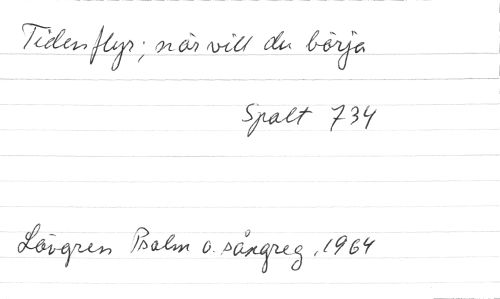 Tiden flyr; när vill du börja
Spalt 734
Lövgren Psalm o. sångreg, 1964